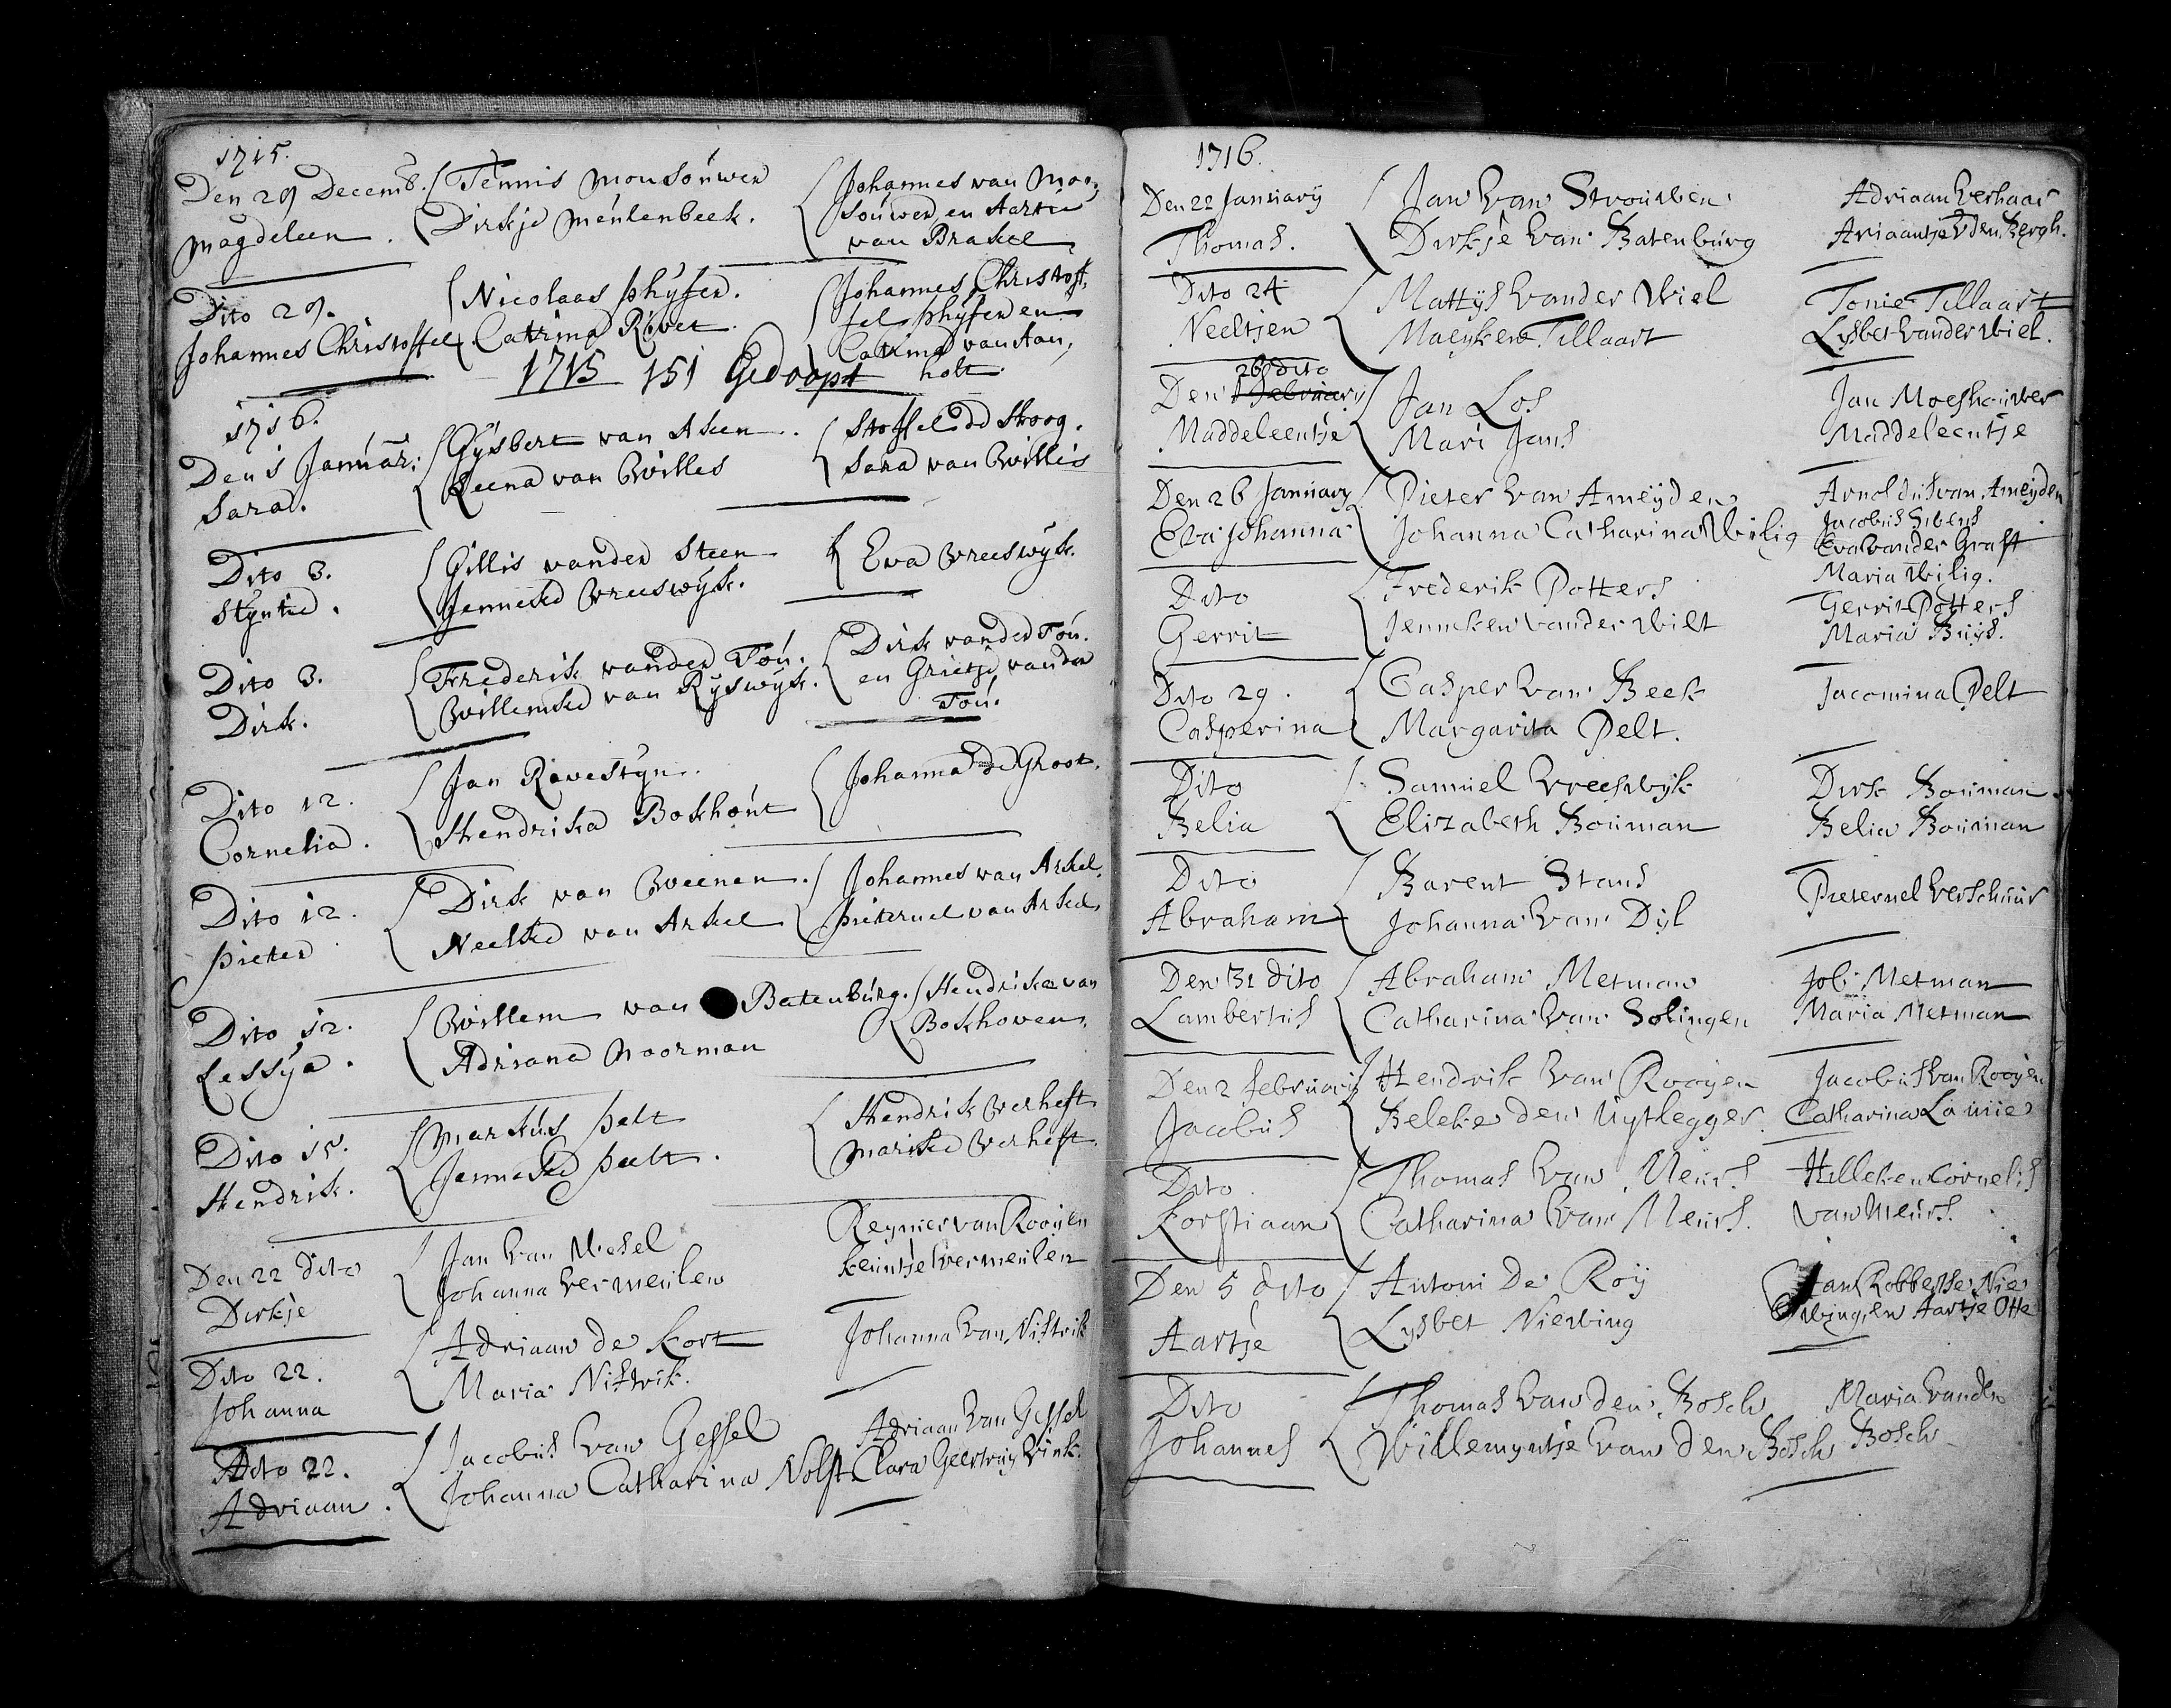 1715.
Den 29 Decemb. Tennis Mousouwer Johannes van Moo,
Magdeleen. Dirkje Meulenbeek. souwer, en Aartie
van Brakel
Dito 29. Nicolaas Phyfer. Johannes Christof,
Johannes Christoffel Catrina Rivet. fel Phyfer en
Catrina van Aan,
holt.
1715 151 Gedoopt
1716.
Den 5 Januari: Gysbert van Aken. Stoffel de Hoog.
Sara. Leena van Willes Sara van Willis
Dito 3. Gillis vander Steen Eva Vreeswyk.
Styntie. Jenneke Vreeswyk.
Dito 3. Frederik vander Tou. Dirk vander Tou.
Dirk. Willemke van Ryswyk. en Grietje vander
Tou.
Dito 12. Jan Ravestyn. Johanna de Groot.
Cornelia. Hendrika Bokhout
Dito 12. Dirk van Weenen. Johannes van Arkel.
Pieter Neeltie van Arkel Pieternel van Arkel,
Dito 12. Willem van Batenburg. Hendrika van
Lessya. Adriana Moorman Bokhoven.
Dito 15. Markus Pelt Hendrik Verheft
Hendrik. Janneke Peelt. Marike Verheft.
Den 22 dito Jan van Wesel Reynier van Rooyen
Dirkje Johanna Vermeulen Leuntje Vermeulen
Dito 22. Adriaan de Kort Johanna van Nistrik
Johanna Maria Nistrik.
Dito 22. Jacobus van Gessel Adriaan van Gessel
Adriaan. Johanna Catharina Nolst Clara Geertruy Vink.
1716.
Den 22 January Jan van Strouwen Adriaan Verhaar
Thomas. Dirkje van Batenburg Ariaantje V den Bergh.
Dito 24 Mattys vander Wiel Tonie Tillaart
Neeltjen Maeyken Tillaart Lysbet vander Wiel.
26 dito
Den 1 February Jan Los Jan Moeshouwer
Maddeleentje Mari Jans Maddeleentje
Den 26 January Pieter van Ameyden Arnoldus van Ameyden
Eva Johanna Johanna Catharina Wilig Jacobus
Eva vander Graft
Maria Wilig.
Dito Frederik Potters Gerrit Potters
Gerrit Jenneken vander Wilt Maria Buys.
Dito 29. Casper van Beek Jacomina Pelt
Casperina Margarita Pelt.
Dito Samuel Vreeswyk Dirk Bouman
Belia Elizabeth Bouman Belia Bouman
Dito Barent Stans Pieternel Verschuur
Abraham Johanna van Dyl
Den 31 dito Abraham Metman Job Metman
Lambertus Catharina van Solingen Maria Metman
Den 2 february Hendrik van Rooyen Jacobus van Rooyen
Jacobus Beleke den Uytlegger. Catharina Louie
Dito Thomas van Meurs Hilleken Cornelis
Korstiaan Catharina van Meurs. van Meurs.
Den 5 dito Antoni de Roy Jan Robbesse Nie
Aartje Lysbet Niewing wing, en Aartje Otte
Dito Thomas van den Bosch Maria vanden
Johannes Willemyntje van den Bosch Bosch